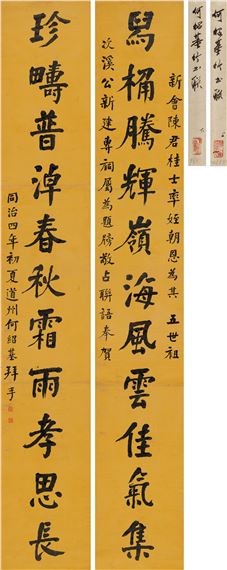 何紹基行書聯
何紹基行書聯
新會陳君桂士率姪朝恩為其 五世祖
舄桷騰輝嶺海風雲佳氣集
次溪公新建專祠屬為題榜敬占聯語奉賀
珍疇普淖春秋霜雨孝思長
同治四年初夏道州何紹基拜手